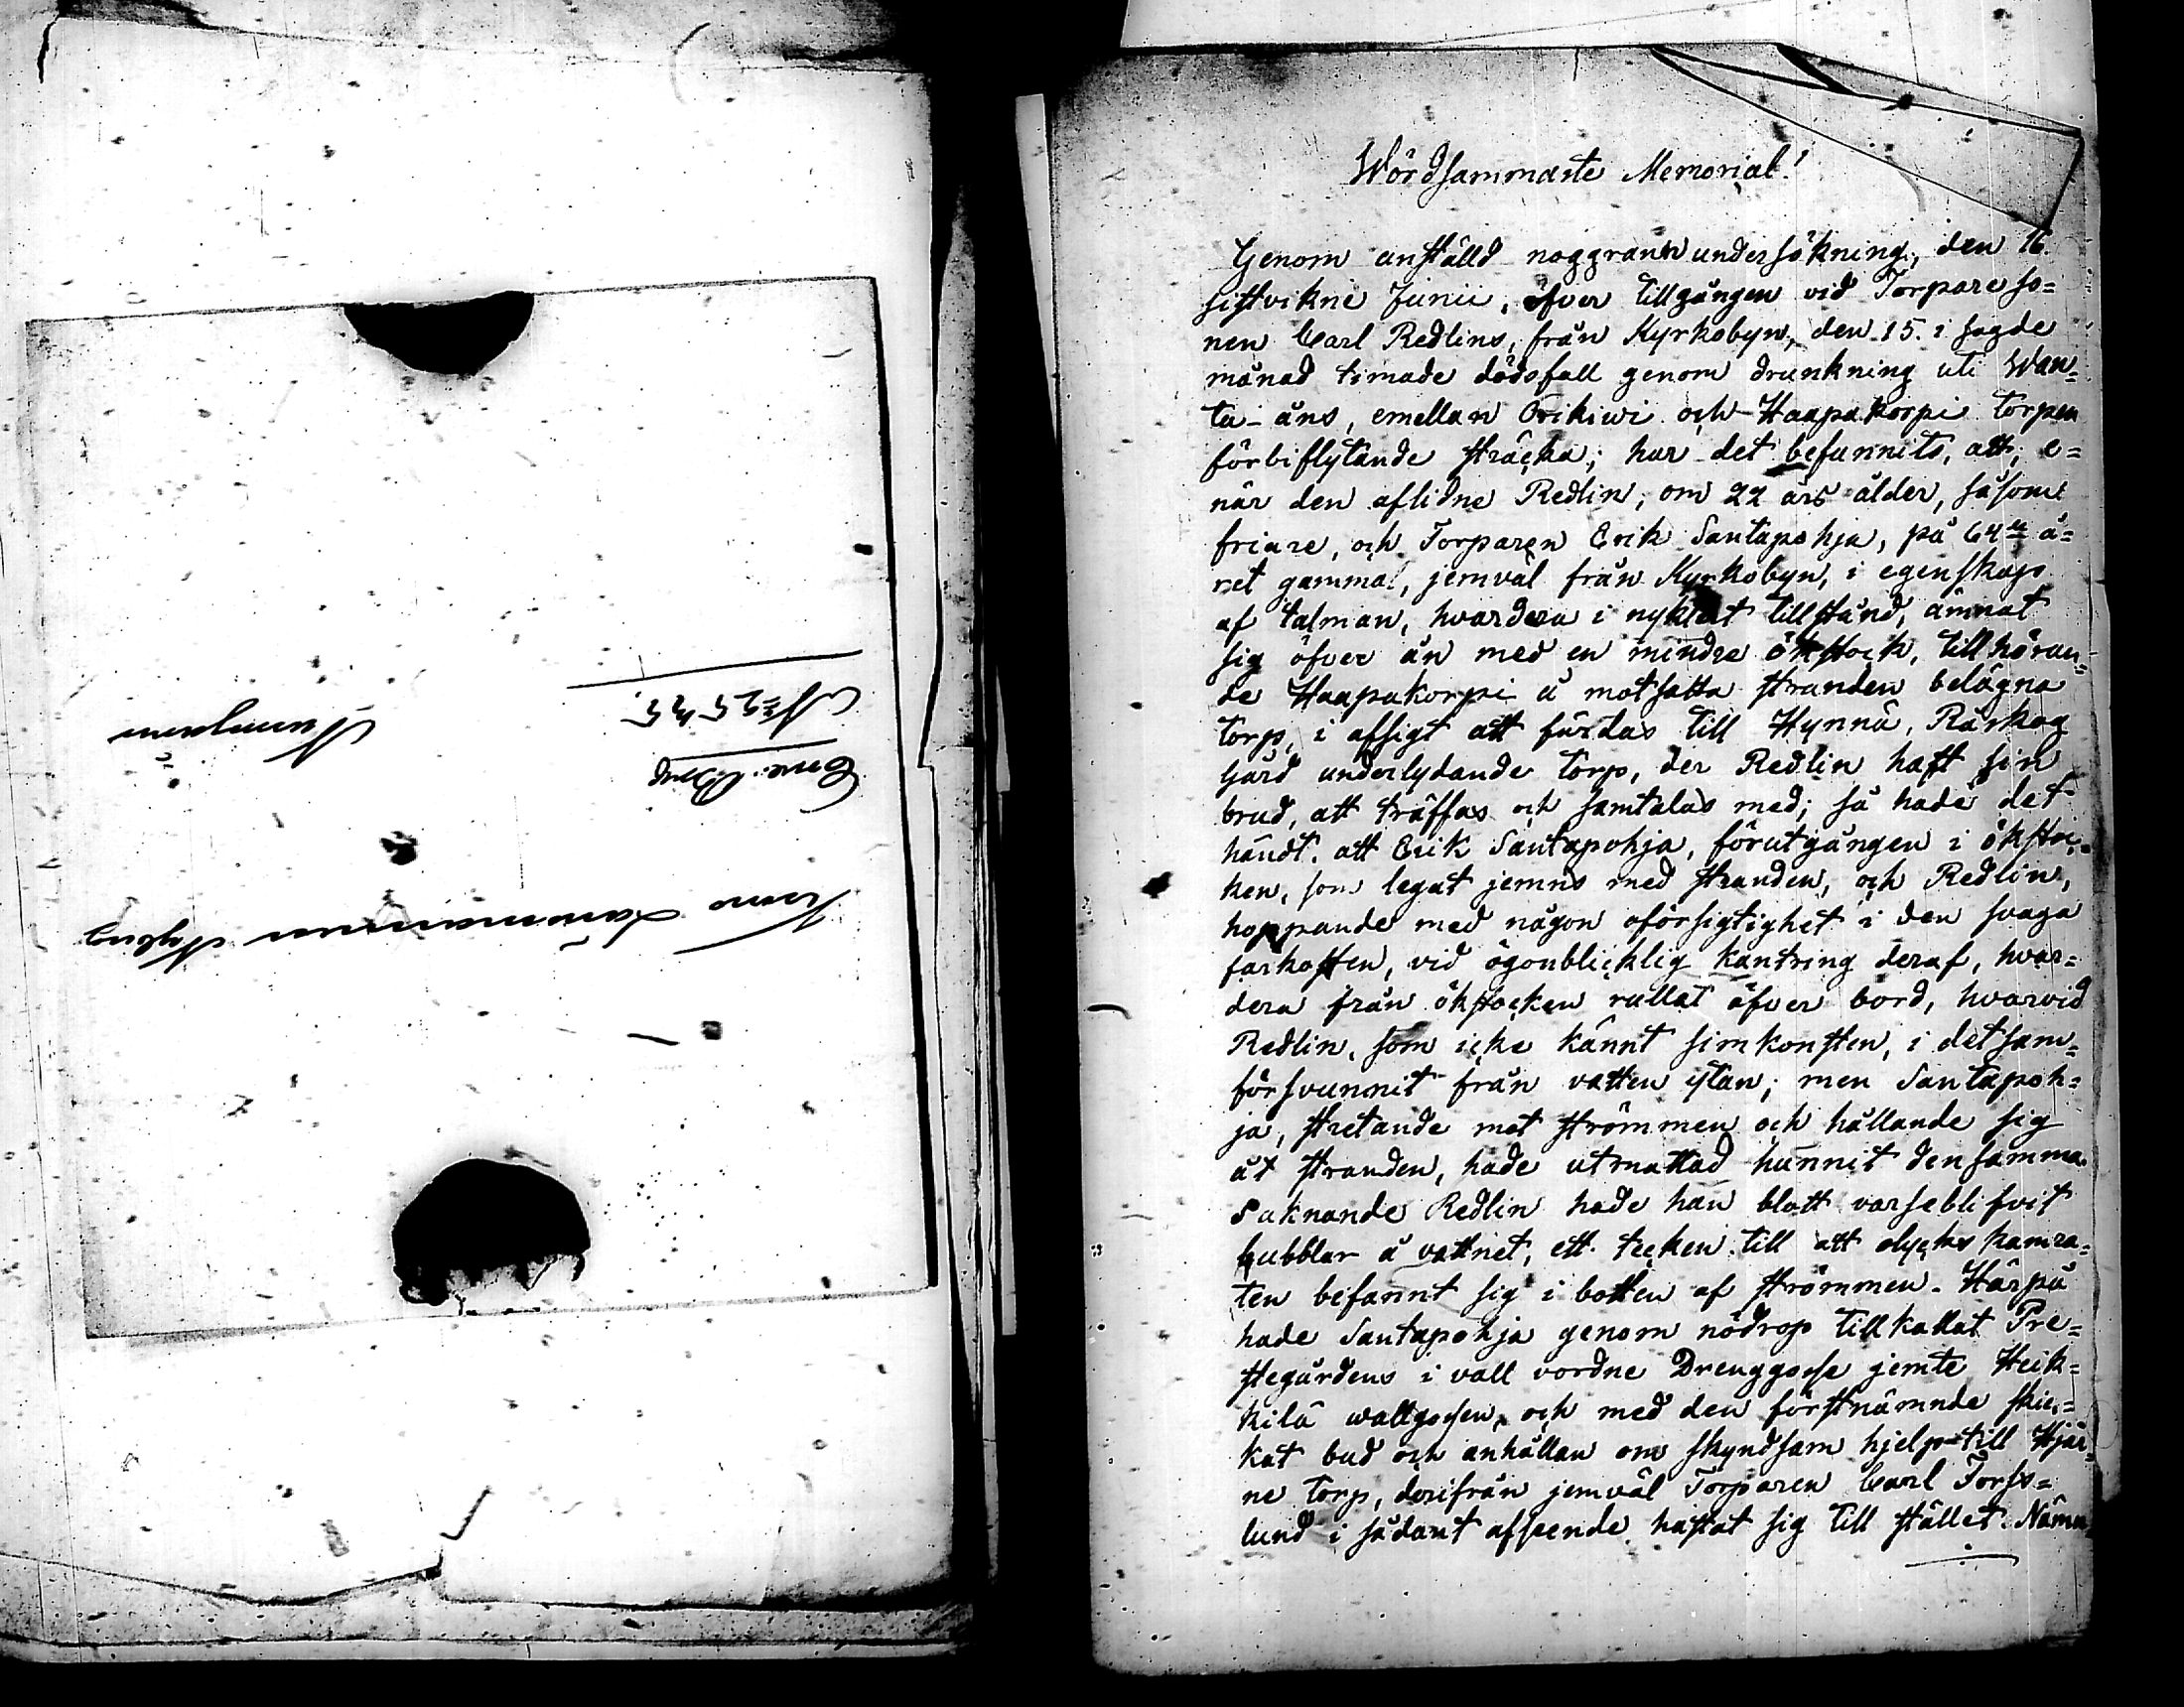 Wördsammaste Memorial!
Genom anställd noggrann undersökning, den 16.
sistvikne Junii, öfver tillgången vid Torpareso=
nen Carl Redlins, från Kyrkobyn, den 15. i sagde
månad timade dödsfall genom drunkning uti Wan=
ta-åns, emellan Orikiwi och Haapakorpi torpen
förbiflytande sträcka; har det befunnits, att, e=
när den aflidne Redlin, om 22 års ålder, såsom
friare, och Torparen Erik Santapohja, på 64de å=
ret gammal, jemväl från Kyrkobyn, i egenskap
af talman, hvardera i nyktert tillstånd, ämnat
sig öfver ån med en mindre ökstock, tillhöran=
de Haapakorpi å motsatta stranden belägna
torp, i afsigt att färdas till Hynnä, Råskog
Gård underlydande torp, der Redlin haft sin
brud, att träffas och samtalas med; så hade det
händt, att Erik Santapohja, förutgången i ökstoc=
ken, som legat jemns med stranden, och Redlin,
hoppande med någon oförsigtighet i den svaga
farkosten, vid ögonblicklig kantring deraf, hvar=
dera från ökstocken rullat öfver bord, hvarvid
Redlin, som icke kännt simkonsten, i detsam=
försvunnit från vatten ytan; men Santapoh=
ja, stretande mot strömmen och hållande sig
åt stranden, hade utmattad hunnit densamma.
Saknande Redlin hade han blott varseblifvit
bubblar å vattnet, ett tecken till att olycks kamra=
ten befannt sig i botten af strömmen. Härpå
hade Santapohja genom nödrop tillkallat Pre=
stegårdens i vall vordne Drenggosse jemte Heik=
kilä wallgossen, och med den förstnämnde skic=
kat bud och anhållan om skyndsam hjelp till Hjär=
ne torp, derifrån jemväl Torparen Carl Forss=
lund i sådant afseende hastat sig till stället. Nämn
No 2525.